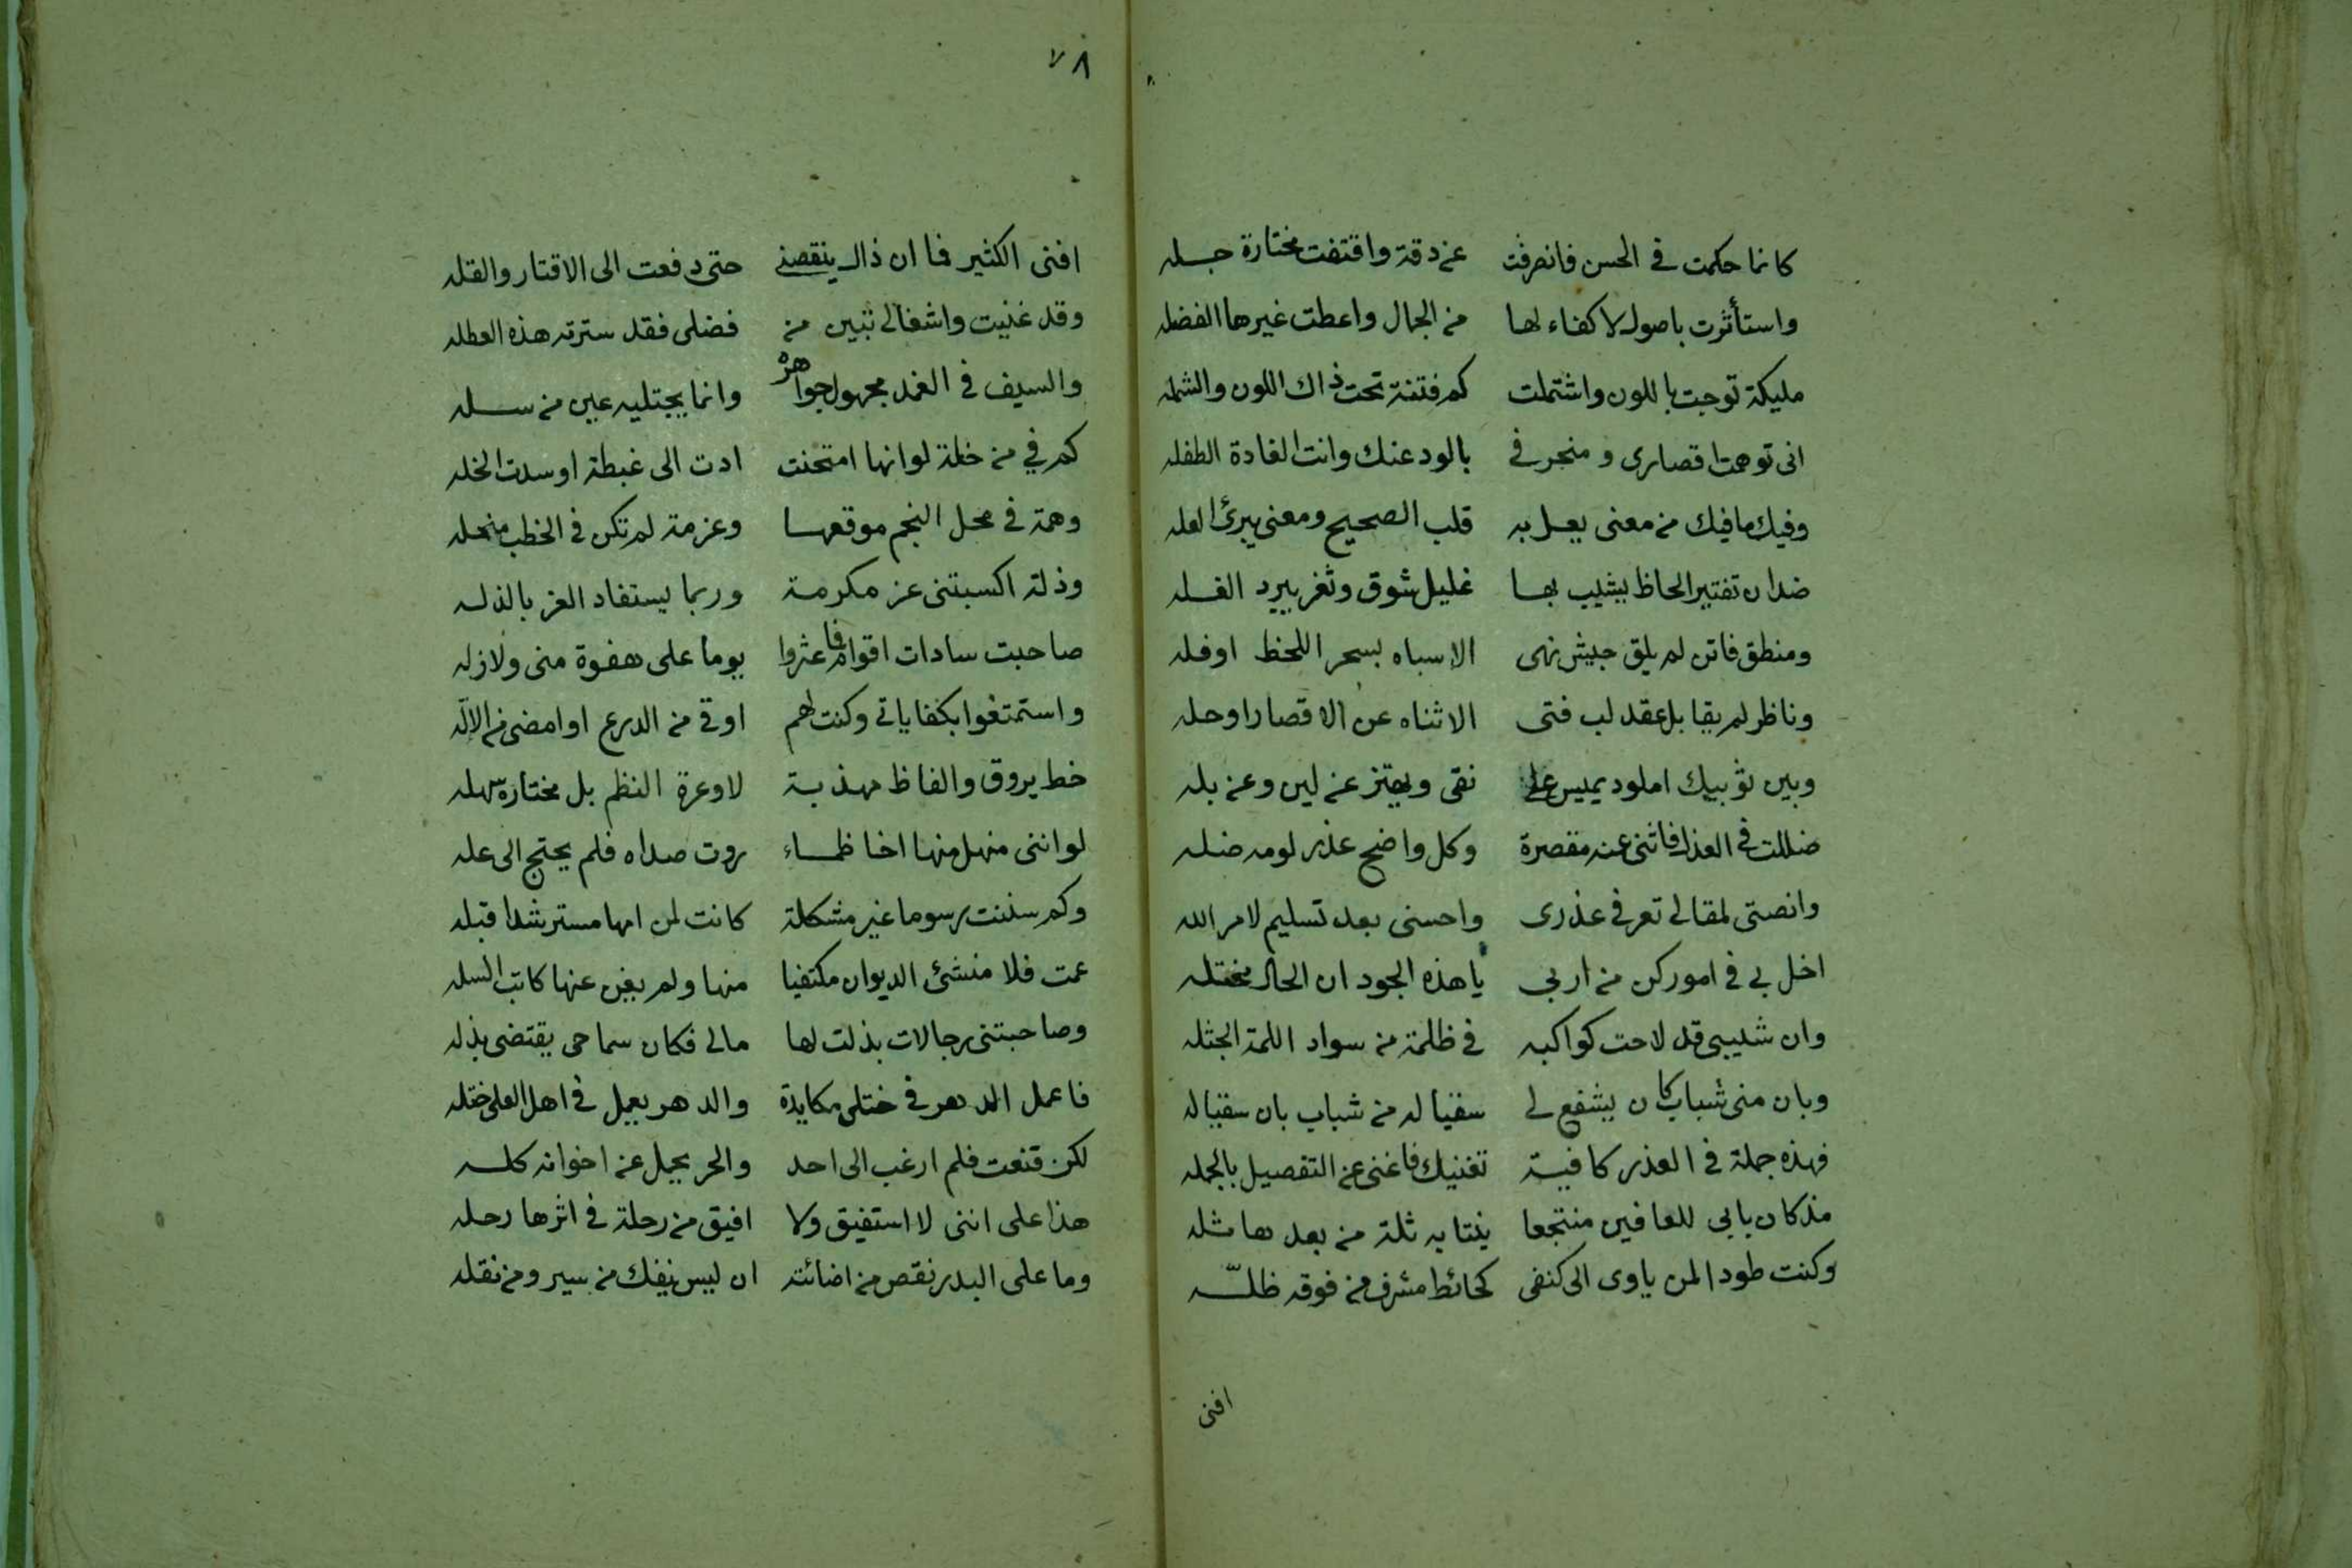 كانما حكمت في الحسن فانصرفت عن دقة واقتفت مختارة جله
واستأثرت باصول لا كفاء لها من الجمال واعطت غيرها الفضله
مليكة توجت باللون واشتملت كم فتنة تحت ذاك اللون والشمله
انى توهمت اقصارى و منجرفى بالود عنك وانت الغادة الطفله
وفيك مافيك من معنى يعل به قلب الصحيح ومعنى يبرئ العله
ضدان تفتير الحاظ يشيب بها غليل شوق وثغر يبرد الغله
ومنطق فاتن لم يلق جيش نهى الا سباه بسحر اللحظ اوفله
وناظر لم يقابل عقد لب فتى الا ثناه عن الاقصار اوحله
وبين ثوبيك املود يميس على نقى ويهتز عن لين وعن بله
ضللت في العذل فاثنى عنه مقصرة وكل واضح عذر لومه ضله
وانصتى لمقالى تعرفى عذرى واحسنى بعد تسليم لامر الله
اخل بى فى امور كن من اربى يا هذه الجود ان الحال مختله
وان شيبى قد لاحت كواكبه فى ظلمة من سواد اللمة الجثله
وبان منى شباب كان يشفع لى سقيا له من شباب بان سقيا له
فهذه جملة فى العذر كافية تغنيك فاغنى عن التفصيل بالجمله
مذ كان بابى للعافين منتجعا ينتابه ثلة من بعدها ثله
وكنت طودا لمن ياوى الى كنفى كحائط مشرف من فوقه ظله
افنى
٧٨
افنى الكثير فما ان ذال ينقصنى حتى دفعت الى الاقتار والقله
وقد غنيت واشغالى تبين من فضلى فقد سترته هذه العطله
والسيف فى الغمد مجهول جواهره وانما يجتليه عين من سله
كم فى من خلة لو انها امتحنت ادت الى غبطة او سدت الخله
وهمة فى محل النجم موقعها وعزمة لم تكن فى الخطب منحله
وذلة اكسبتنى عز مكرمة وربما يستفاد العز بالذله
صاحبت سادات اقوام فما عثروا يوما على هفوة منى ولا زله
واستمتعوا بكفاياتى وكنت لهم اوقى من الدرع او امضى من الاله
خط يروق والفاظ مهذبة لا وعرة النظم بل مختارة سهله
لو اننى منهل منها اخا ظماء روت صداه فلم يحتج الى عله
وكم سننت رسوما غير مشكلة كانت لمن امها مسترشدا قبله
عمت فلا منشئ الديوان مكتفيا منها ولم يغن عنها كاتب السله
وصاحبتنى رجالات بذلت لها مالى فكان سماحى يقتضى بذله
فاعمل الدهر فى ختلى مكايدة والدهر يعمل فى اهل العلى ختله
لكن قنعت فلم ارغب الى احد والحر يحمل عن اخوانه كله
هذا على اننى لا استفيق ولا افيق من رحلة فى اثرها رحله
وما على البدر نقص من اضائته ان ليس ينفك من سير ومن نقله